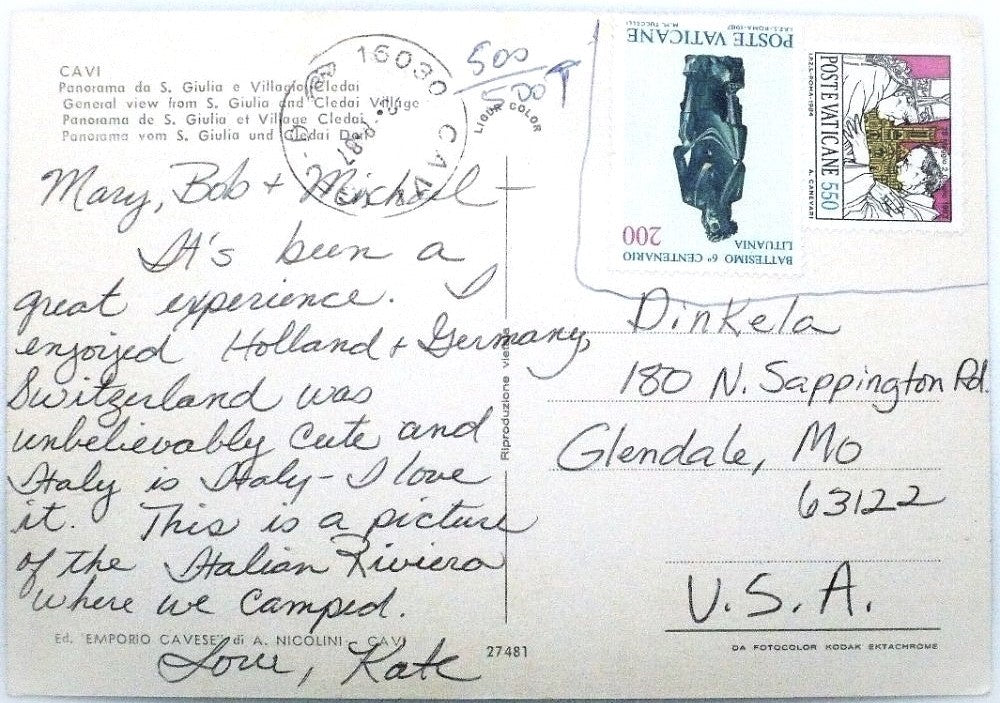 CAVI
Panorama da S. Giulia e Villagio Cledai
General view from S. Giulia and Cledai Village
Panorama de S. Giulia et Village Cledai
Panorama vom S. Giulia und Cledai Dorf
Mary, Bob + Michael –
It's been a
great experience. I
enjoyed Holland + Germany,
Switzerland was
unbelievably cute and
Italy is Italy – I love
it. This is a picture
of the Italian Riviera
where we camped.
Love, Kate
Ed. "EMPORIO CAVESE" di A. NICOLINI - CAVI
27481
Riproduzione vietata
LIGUR COLOR
16030 CAVI
87
500
500 T
POSTE VATICANE
I.P.Z.S.-ROMA-1987
M.M. TUCCELLI
200
BATTESIMO 6º CENTENARIO
LITUANIA
POSTE VATICANE 550
I.P.Z.S.-ROMA-1986
A. CANEVARI
Dinkela
180 N. Sappington Rd.
Glendale, Mo
63122
U.S.A.
DA FOTOCOLOR KODAK EKTACHROME